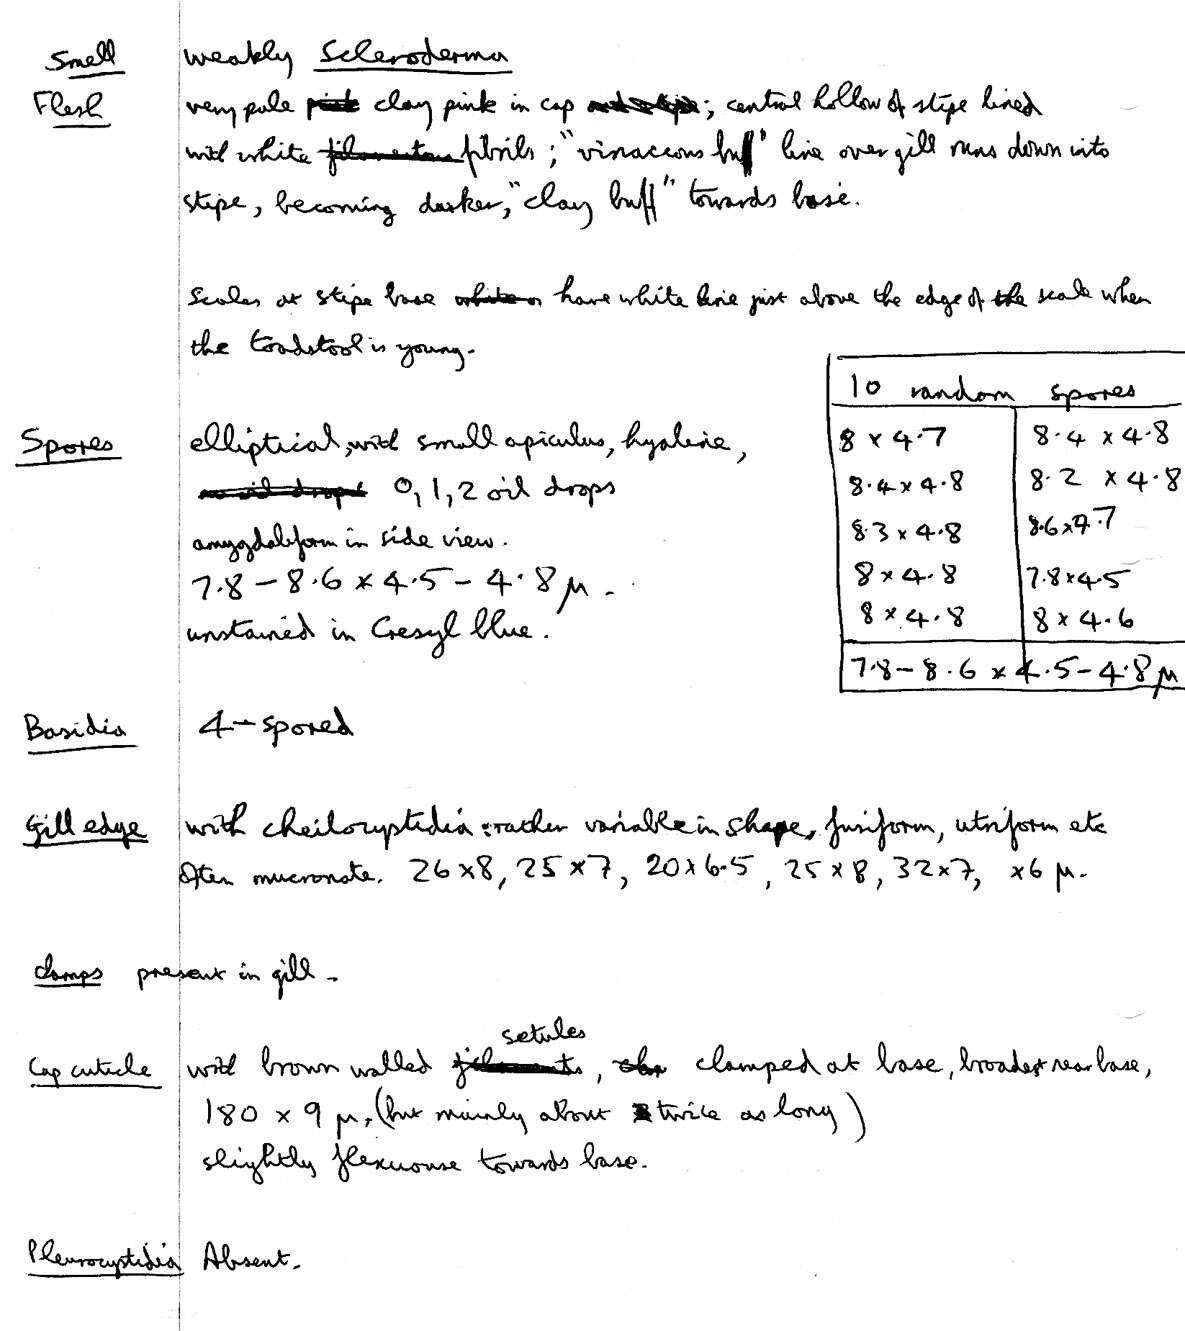 Smell weakly Scleroderma
Flesh very pale pink clay pink in cap and stipe; central hollow of stipe lined
with white filamentous fibrils; "vinaceous buff" line over gill runs down into
stipe, becoming darker, "clay buff" towards base.
Scales at stipe base white on have white line just above the edge of the scale when
the toadstool is young.
10 random spores
Spores elliptical, with small apiculus, hyaline,
no oil drops 0, 1, 2 oil drops
amygdaliform in side view.
7.8 - 8.6 x 4.5 - 4.8 µ.
unstained in Cresyl blue.
8 x 4.7 8.4 x 4.8
8.4 x 4.8 8.2 x 4.8
8.3 x 4.8 8.6 x 4.7
8 x 4.8 7.8 x 4.5
8 x 4.8 8 x 4.6
7.8 - 8.6 x 4.5 - 4.8 µ
Basidia 4-spored
Gill edge with cheilocystidia rather variable in shape, fusiform, utriform etc
Often mucronate. 26 x 8, 25 x 7, 20 x 6.5, 25 x 8, 32 x 7, x 6 µ.
Clamps present in gill.
setules
Cap cuticle with brown walled filaments, clamped at base, broadest near base,
180 x 9 µ, (but mainly about twice as long)
slightly flexuouse towards base.
Pleurocystidia Absent.